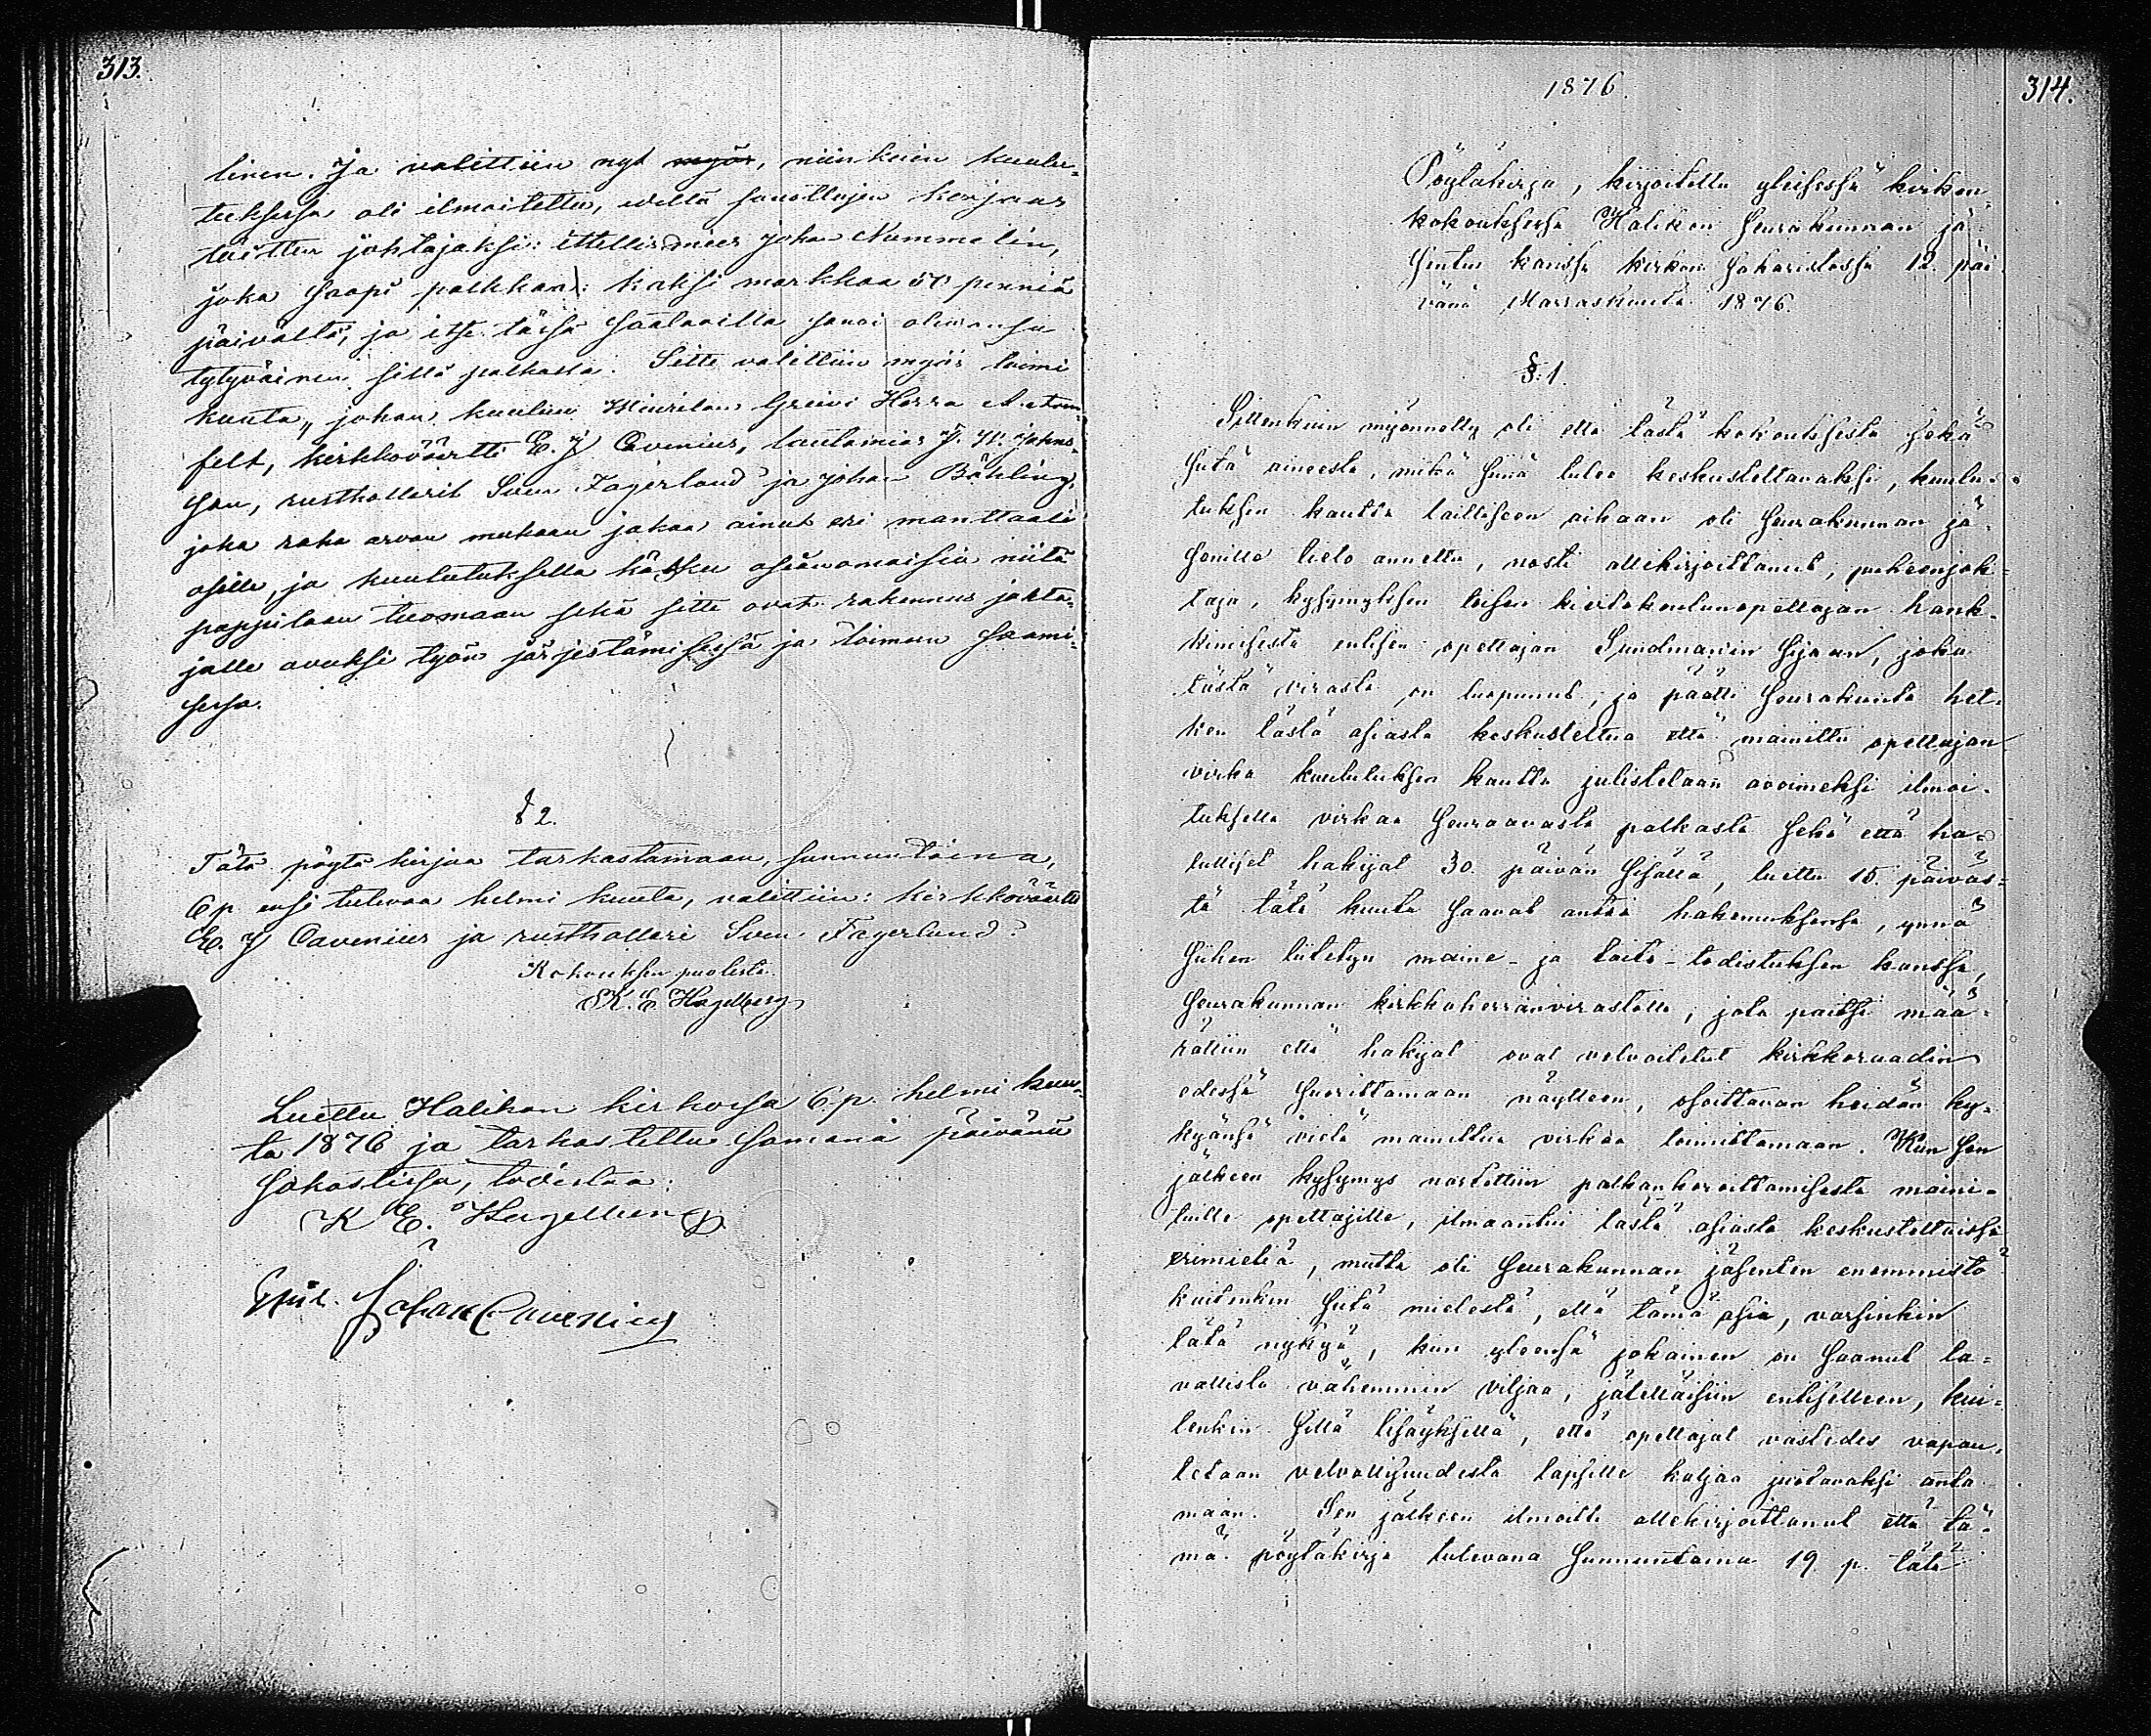 313.
linen. Ja valittiin nyt myös, niinkuin kuulu-
tuksessa oli ilmoitettu, wielä sanottujen korjaus
töitten johtajaksi: ittellismies Johan Nummelin,
joka saapi palkkaa: kaksi markkaa 50 penniä
päivältä, ja itse täisä saalailla sanoi olewansa
tytyväinen sillä palkalla. Sitte valittiin myös toimi
kunta, johon kuuluu Wiurilan Greivi Herra Arm-
felt, kirkkoväärtti E. J Cavenius, lautamies J. W. Johns-
son, rusthollarit Sven Fagerlund ja Johan Böhling,
joka raha arvon mukaan jakaa ainet eri manttaali
osille, ja kuulutuksella käskee asianomaisia niitä
pappilaan tuomaan sekä sitte ovat rakennus johta-
jalle avuksi työn järjestämisessä ja toimeen saami-
sessa.
§ 2.
Tätä pöytä kirjaa tarkastamaan, sunnuntaina,
6 p. ensi tulevaa helmi kuuta, valittiin: kirkkoväärtti
E. J Cavenius ja rusthollari Sven Fagerlund.
Kokouksen puolesta
K. E Hagelberg
Luettu Halikon kirkossa 6. p. helmi kuu-
ta 1876 ja tarkastettu samana päivänä
sakastissa, todistaa:
K E. Hagelberg
Johan Cavenius
1876.
314.
Pöytäkirja, kirjoitettu yleisessä kirkon-
kokouksessa Halikon Seurakunnan jä-
senten kanssa kirkon Sakaristossa 12. päi
vänä Marraskuuta 1876.
§. 1.
Sittenkuin myönnetty oli että tästä kokouksesta sekä
siitä aineesta, mikä siinä tulee keskusteltavaksi, kuulu-
tuksen kautta lailliseen aikaan oli Seurakunnan jä-
senille tieto annettu, nosti allekirjoittanut, puheenjoh-
taja, kysymyksen toisen kiertokoulunopettajan hank-
kimisesta entisen opettajan Sundmanin sijaan, joka
tästä virasta on luopunut, ja päätti Seurakunta het-
ken tästä asiasta keskusteltua että mainittu opettajan
virka kuulutuksen kautta julistetaan avoimeksi ilmoi-
tuksella virkaa seuraavasta palkasta sekä että ha-
lulliset hakijat 30. päivän sisällä, luettu 15. päiväs-
tä tätä kuuta saavat antaa hakemuksensa, ynnä
siihen liitetyn maine- ja taito-todistuksen kanssa,
Seurakunnan kirkkoherranvirastolle, jota paitsi mää-
rättiin että hakijat ovat velvoitetut kirkkoraadin
edessä suorittamaan näytteen, osoittavan heidän ky-
kyänsä vielä mainittua virkaa toimittamaan. Kun sen
jälkeen kysymys nostettiin palkankoroittamisesta maini-
tuille opettajille, ilmaantui tästä asiasta keskusteltaissa
erimieliä, mutta oli Seurakunnan jäsenten enemmistö
kuitenkin siitä mielestä, että tämä asia, varsinkin
tätä nykyä, kun yleensä jokainen on saanut ta-
vallista vähemmin viljaa, jätettäisiin entiselleen, kui-
tenkin sillä lisäyksellä, että opettajat vastedes vapau-
tetaan velvollisuudesta lapsille kaljaa juotavaksi anta
maan. Sen jälkeen ilmoitti allekirjoittanut että tä-
mä pöytäkirja tulevana Sunnuntaina 19 p. tätä